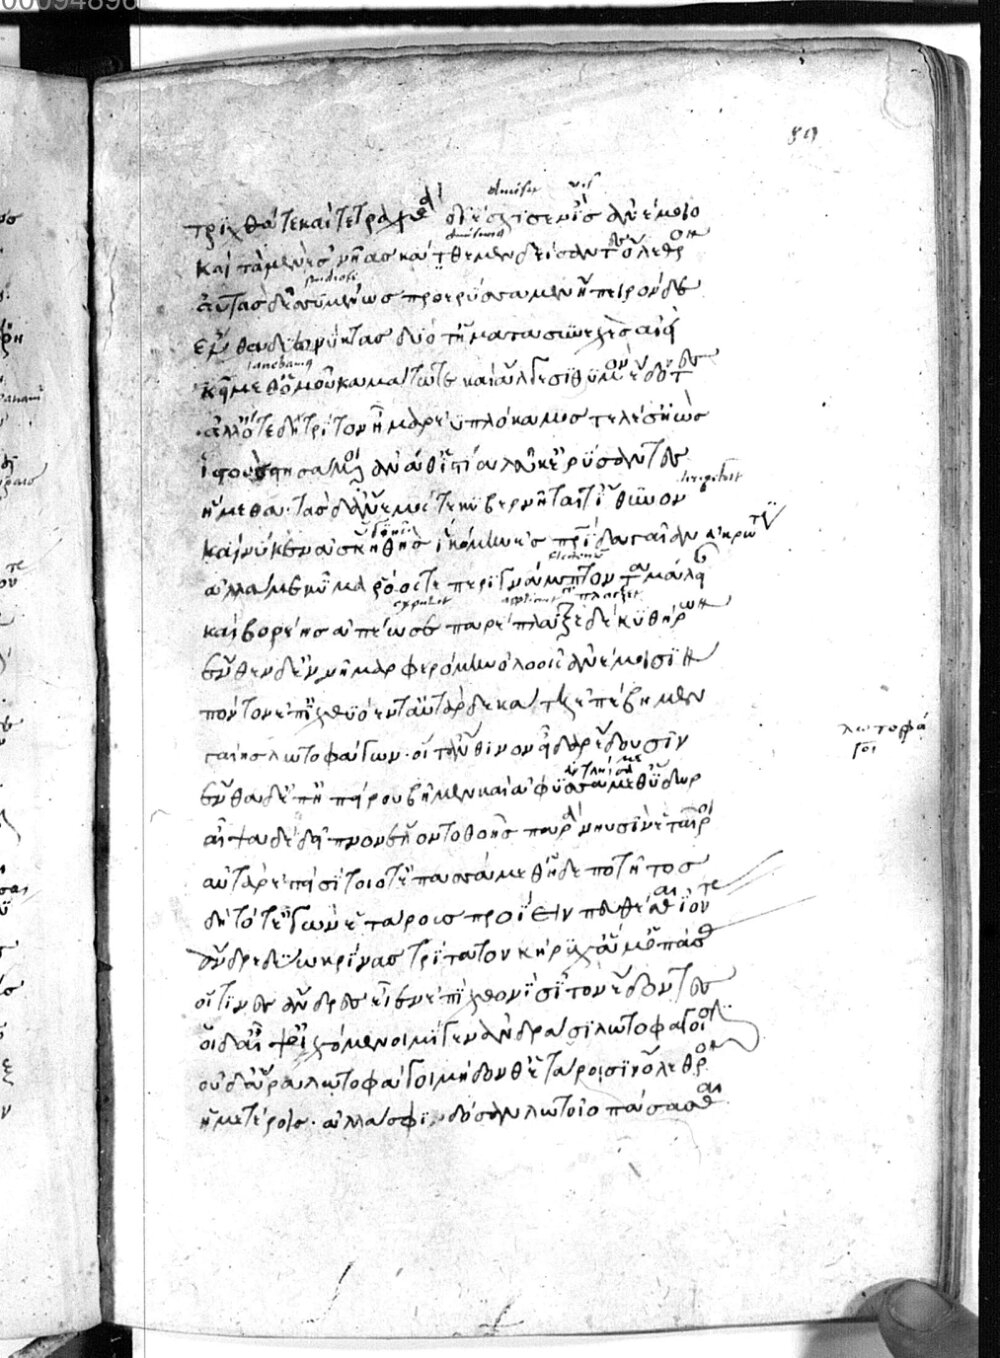 89
τριχθάτε καὶ τετραχθὰ διέσχισεν ἲς ἀνέμοιο
καὶ τὰ μὲν ἐς νῆας κάτθεμεν δείσαντες ὄλεθρον
αὐτὰς δ' ἐσσυμένως προερύσσαμεν ἤπειρόνδε
ἔνθα δύω νύκτας δύο τ' ἤματα συνεχὲς αἰεὶ
κείμεθ' ὁμοῦ καμάτωτε καὶ ἄλγεσι θυμὸν ἔδοντες
ἀλλ' ὅτε δὴ τρίτον ἦμαρ ἐϋπλόκαμος τέλεσ' ἠὼς
ἱστοὺς στησάμενοι ἀνά θ' ἱστία λεύκ' ἐρύσαντες
ἥμεθα· τὰς δ' ἄνεμός τε κυβερνῆταί τ' ἴθυνον
καί νύ κεν ἀσκηθὴς ἱκόμην ἐς πατρίδα γαῖαν
ἀλλά με κῦμα ῥόος τε περιγνάμπτοντα μάλειαν
καὶ βορέης ἀπέωσε παρέπλαγξε δὲ κυθήρων
ἔνθεν δ' ἐννῆμαρ φερόμην ὀλοοῖς ἀνέμοισιν
πόντον ἐπ' ἰχθυόεντα· ἀτὰρ δεκάτῃ ἐπέβημεν
γαίης λωτοφάγων· οἵ τ' ἄνθινον εἶδαρ ἔδουσιν
λωτοφά
γοι
ἔνθα δ' ἐπ' ἠπείρου βῆμεν καὶ ἀφυσσάμεθ' ὕδωρ
αἶψα δὲ δεῖπνον ἕλοντο θοῇς παρὰ νηυσὶν ἑταῖροι
αὐτὰρ ἐπεὶ σίτοιό τ' ἐπασσάμεθ' ἠδὲ ποτῆτος
δὴ τότ' ἐγὼν ἑτάροις προΐειν πεύθεσθαι ἰόντας
ἄνδρε δύω κρίνας τρίτατον κήρυχ' ἅμ' ὀπάσσας
οἵτινες ἀνέρες εἶεν ἐπὶ χθονὶ σῖτον ἔδοντες
οἱ δ' αἶψ' οἰχόμενοι μίγεν ἀνδράσι λωτοφάγοισιν
οὐδ' ἄρα λωτοφάγοι μήδονθ' ἑτάροισιν ὄλεθρον
ἡμετέροις· ἀλλά σφι δόσαν λωτοῖο πάσασθαι